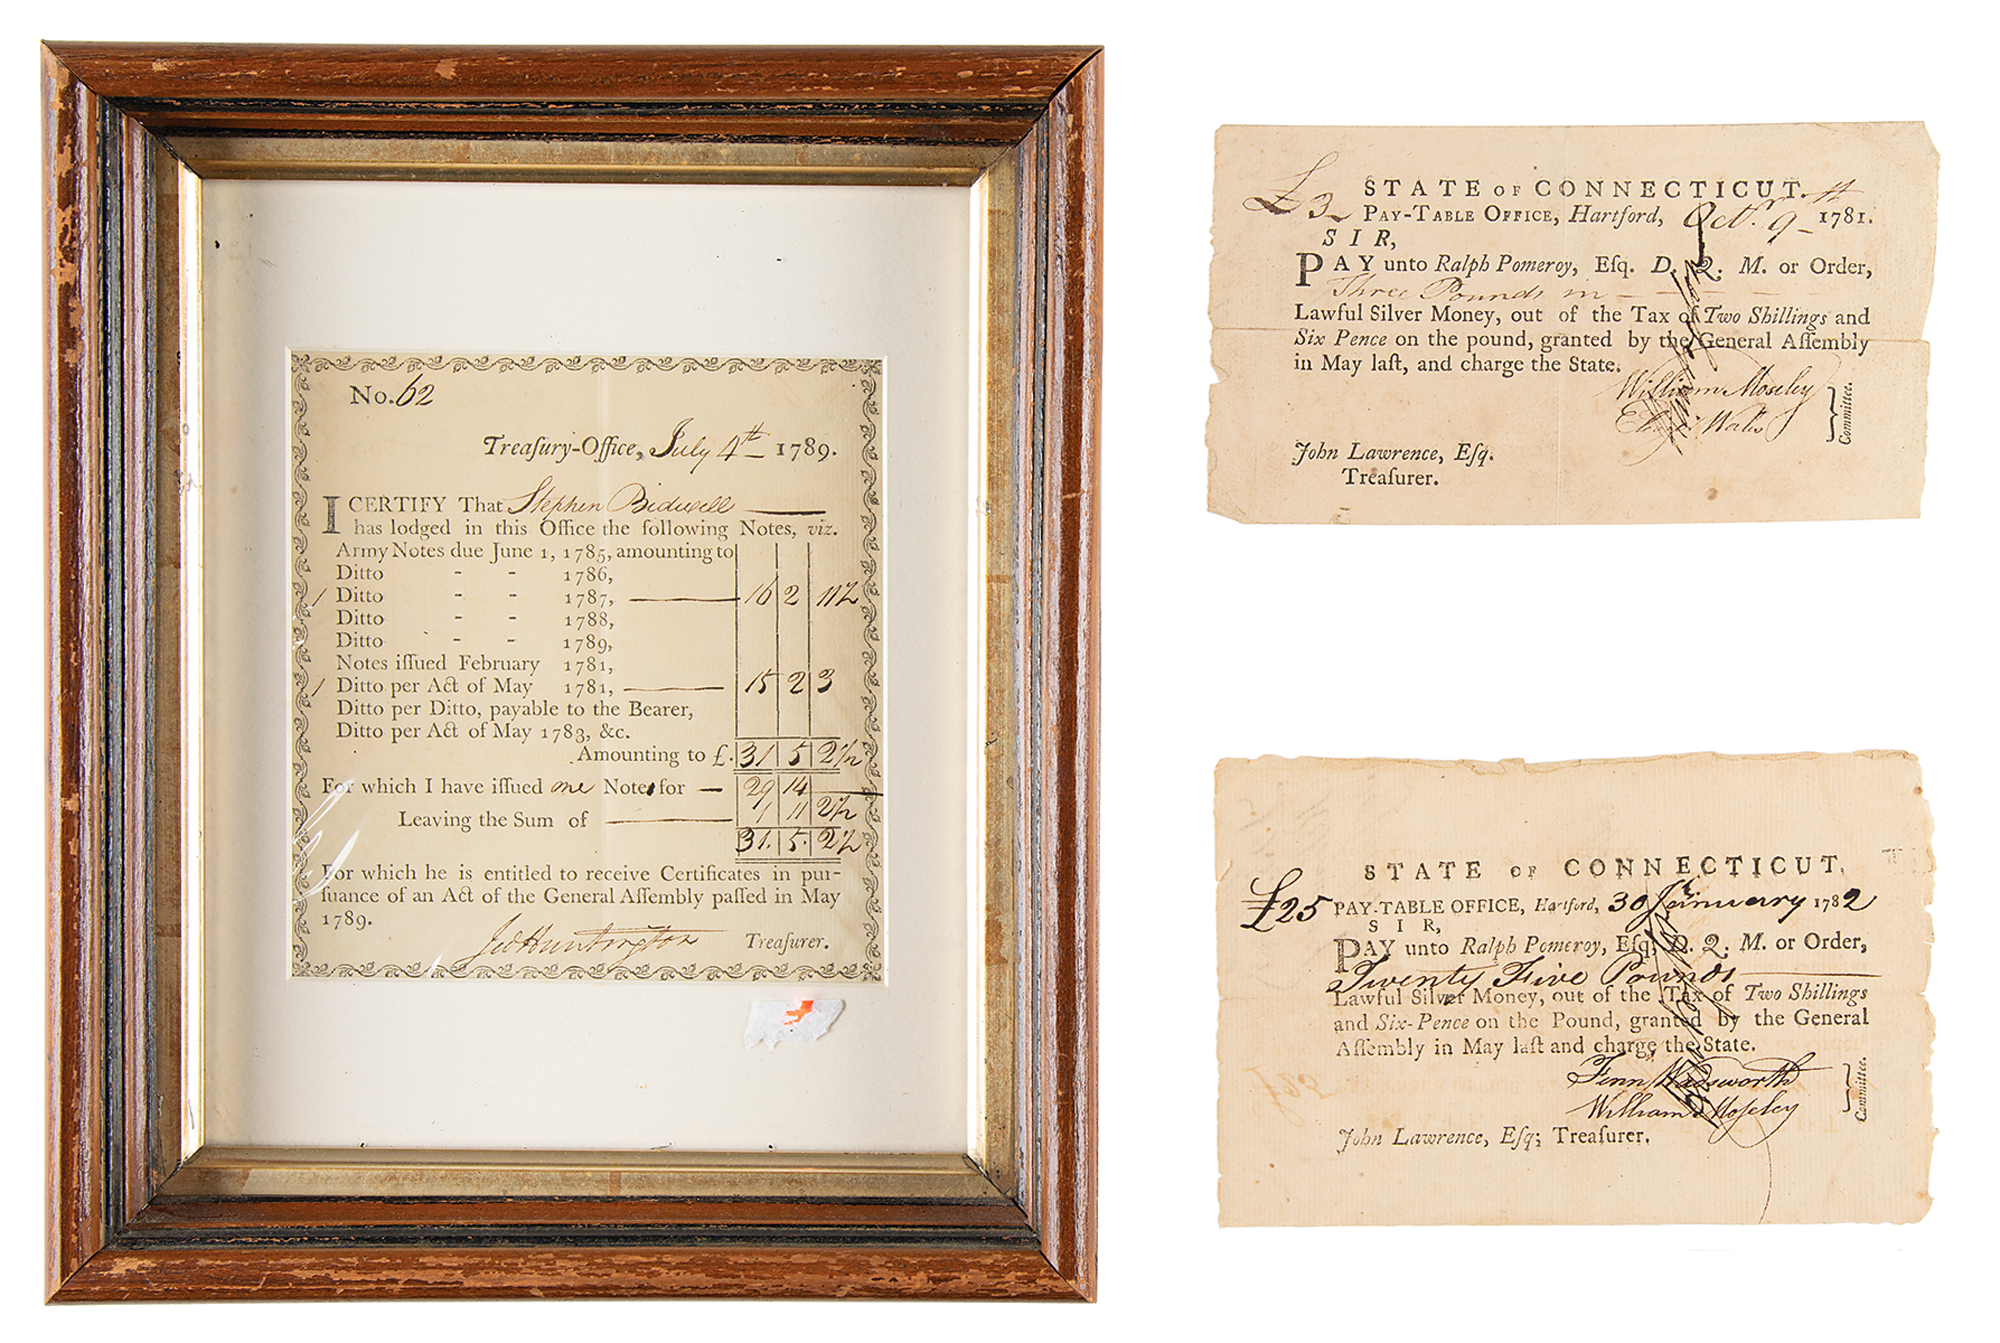 No. 62
Treaſury-Office, July 4th 1789.
I CERTIFY That Stephen Bidwell
has lodged in this Office the following Notes, viz.
Army Notes due June 1, 1785, amounting to
Ditto - - 1786,
1 Ditto - - 1787, 16 2 11½
Ditto - - 1788,
Ditto - - 1789,
Notes iſſued February 1781,
1 Ditto per Act of May 1781, 15 2 3
Ditto per Ditto, payable to the Bearer,
Ditto per Act of May 1783, &c.
Amounting to £. 31 5 2½
For which I have iſſued one Note for 29 14
1 11 2½
Leaving the Sum of
31. 5. 2½
For which he is entitled to receive Certificates in pur-
ſuance of an Act of the General Aſſembly paſſed in May
1789.
Jed Huntington Treaſurer.
STATE OF CONNECTICUT.
£3 PAY-TABLE OFFICE, Hartford, Octr. 9th 1781.
SIR,
PAY unto Ralph Pomeroy, Eſq. D. Q. M. or Order,
Three Pounds in
Lawful Silver Money, out of the Tax of Two Shillings and
Six Pence on the pound, granted by the General Aſſembly
in May laſt, and charge the State.
William Moseley
Wales
Committee.
John Lawrence, Eſq.
Treaſurer.
STATE OF CONNECTICUT.
£25 PAY-TABLE OFFICE, Hartford, 30 January 1782
SIR,
PAY unto Ralph Pomeroy, Eſq; D. Q. M. or Order,
Twenty Five Pounds
Lawful Silver Money, out of the Tax of Two Shillings
and Six-Pence on the Pound, granted by the General
Aſſembly in May laſt and charge the State.
Fenn Wadsworth
William Moſeley
Committee.
John Lawrence, Eſq; Treaſurer.